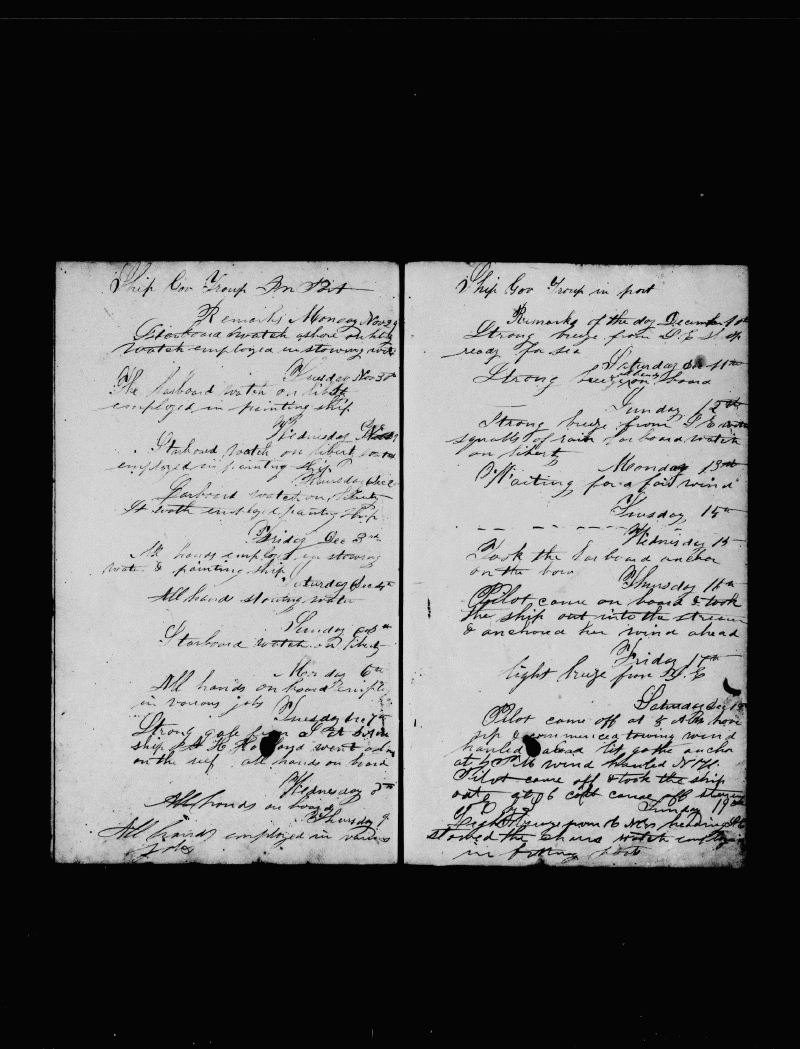 Ship Gov Troup In Port
Remarks Monday Nov 29
Starboard watch ashore on liberty
watch employed in stowing
Tuesday Nov 30th
The Larboard watch on liberty
employed in painting ship
Wednesday Dec
Starboard watch on libert
employed in painting ship
Thursday Dec 2
Larboard watch on liberty
St watch employed painting ship
Friday Dec 3rd
All hands employed in stowing
water & painting ship
Saturday Dec 4th
All hands stowing water
Sunday
Starboard watch on liberty
Monday 6th
All hands on board emple
in various jobs
Tuesday Dec 7th
Strong gale from
ship went
on the reef all hands on board
Wednesday 8th
All hands on board
Thursday 9
All hands employed in various
jobs
Ship Gov Troup in port
Remarks of the day December 10th
Strong breeze from S E
ready for sea
Saturday 11th
Strong breeze board
Sunday 12th
Strong breeze from S E with
squalls of rain Larboard watch
on libert
Monday 13th
Waiting for a fair wind
Tuesday 15th
Wednesday 15
Took the Larboard anchor
on the bow
Thursday 16th
Pilot came on board & took
the ship out into the stream
& anchored her wind ahead
Friday 17th
light breeze from S E
Saturday Dec 18
Pilot came off at 8 AM hove
up & commenced towing wind
hauled ahead let go the anchor
at PM wind hauled
Pilot came off & took the ship
out came off
Sunday 19th
heading
stowed the chains watch employ
in